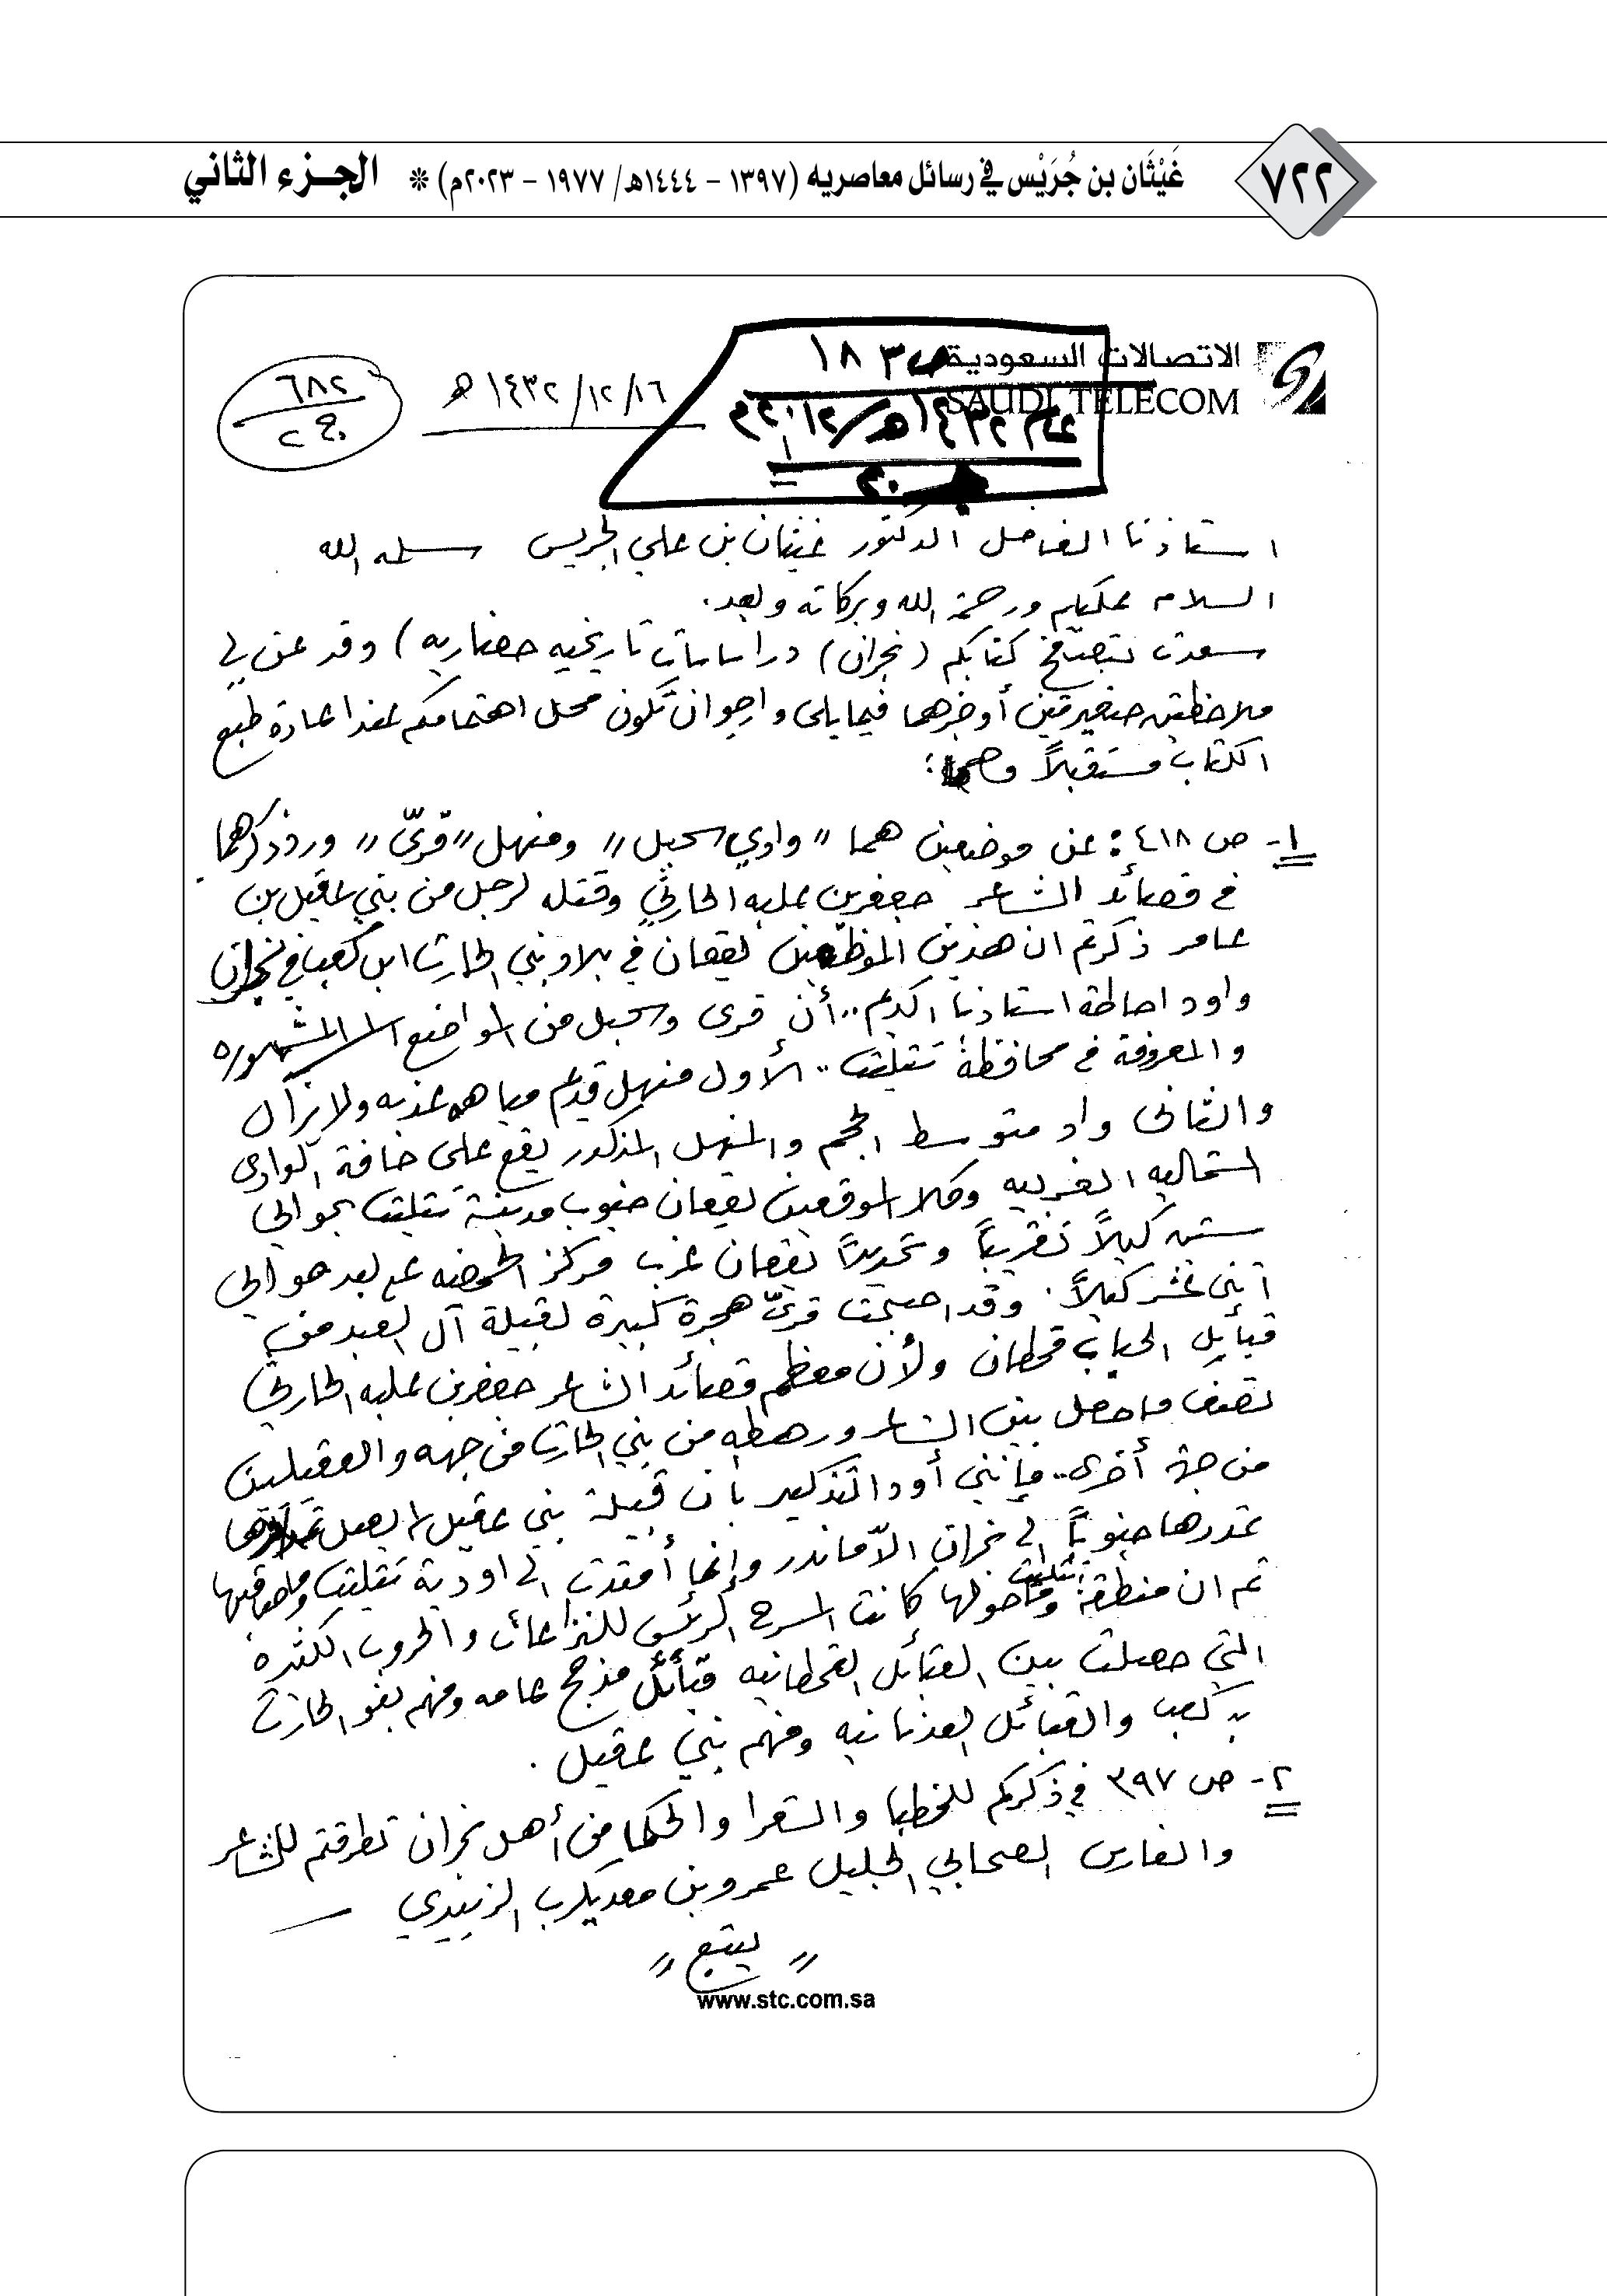 ٧٢٢
غَيْثَان بن جُرَيْس في رسائل معاصريه (١٣٩٧ - ١٤٤٤هـ/ ١٩٧٧ - ٢٠٢٣م) * الجـزء الثاني
الاتصالات السعودية
SAUDI TELECOM
ص٣ ١٨
١٦/ ١٢/ ١٤٣٢ هـ
٦٨٢
ج٢
استاذنا الفاضل الدكتور غيثان بن علي الجريس سلمه الله
السلام عليكم ورحمة الله وبركاته وبعد.
سعدت بتصفح كتابكم (نجران) دراسات تاريخيه حضاريه) وقد عن لي
ملاحظتين صغيرتين أوجزهما فيما يلي وارجو ان تكون محل اهتمامكم عند اعادة طبع
الكتاب مستقبلاً وهما:
١- ص ٤١٨: عن موضعين هما "وادي سحبل" ومنهل "قرىّ" ورد ذكرهما
في قصائد الشاعر جعفر بن علبه الحارثي وقتله لرجل من بني عقيل بن
عامر ذكرتم ان هذين الموضعين يقعان في بلاد بني الحارث ابن كعب في نجران
واود احاطة استاذنا الكريم.. أن قرى وسحبل من المواضع المشهوره
والمعروفة في محافظة تثليث.. الأول منهل قديم مياهه عذبه ولا يزال
والثاني واد متوسط الحجم والمنهل المذكور يقع على حافة الوادي
الشماليه الغربيه وكلا الموقعين يقعان جنوب مدينة تثليث بحوالي
ستين كيلاً تقريباً وتحديداً يقعان غرب مركز الحمضه على بعد حوالي
اثني عشر كيلاً. وقد اصبحت قرىّ هجرة كبيرة لقبيلة آل العبد من
قبايل الحباب قحطان ولأن معظم قصائد الشاعر جعفر بن علبه الحارثي
تصف ما حصل بين الشاعر ورهطه من بني الحارث من جهه والعقيليين
من جهة أخرى.. فإنني أود التذكير بأن قبيلة بني عقيل لا يصل
تمددها جنوباً الى نجران الاّ ما ندر وإنما أمتدت الى اودية تثليث وما حاقبها
ثم ان منطقة تثليث وما حولها كانت المسرح الرئيس للنزاعات والحروب الكثيره
التي حصلت بين القبائل القحطانيه قبائل مذحج عامه ومنهم بنو الحارث
بن كعب والقبائل العدنانيه ومنهم بني عقيل.
٢- ص ٣٩٧ في ذكركم للخطبا والشعرا والحكما من أهل نجران تطرقتم للشاعر
والفارس الصحابي الجليل عمرو بن معديكرب الزبيدي
"يتبع"
www.stc.com.sa